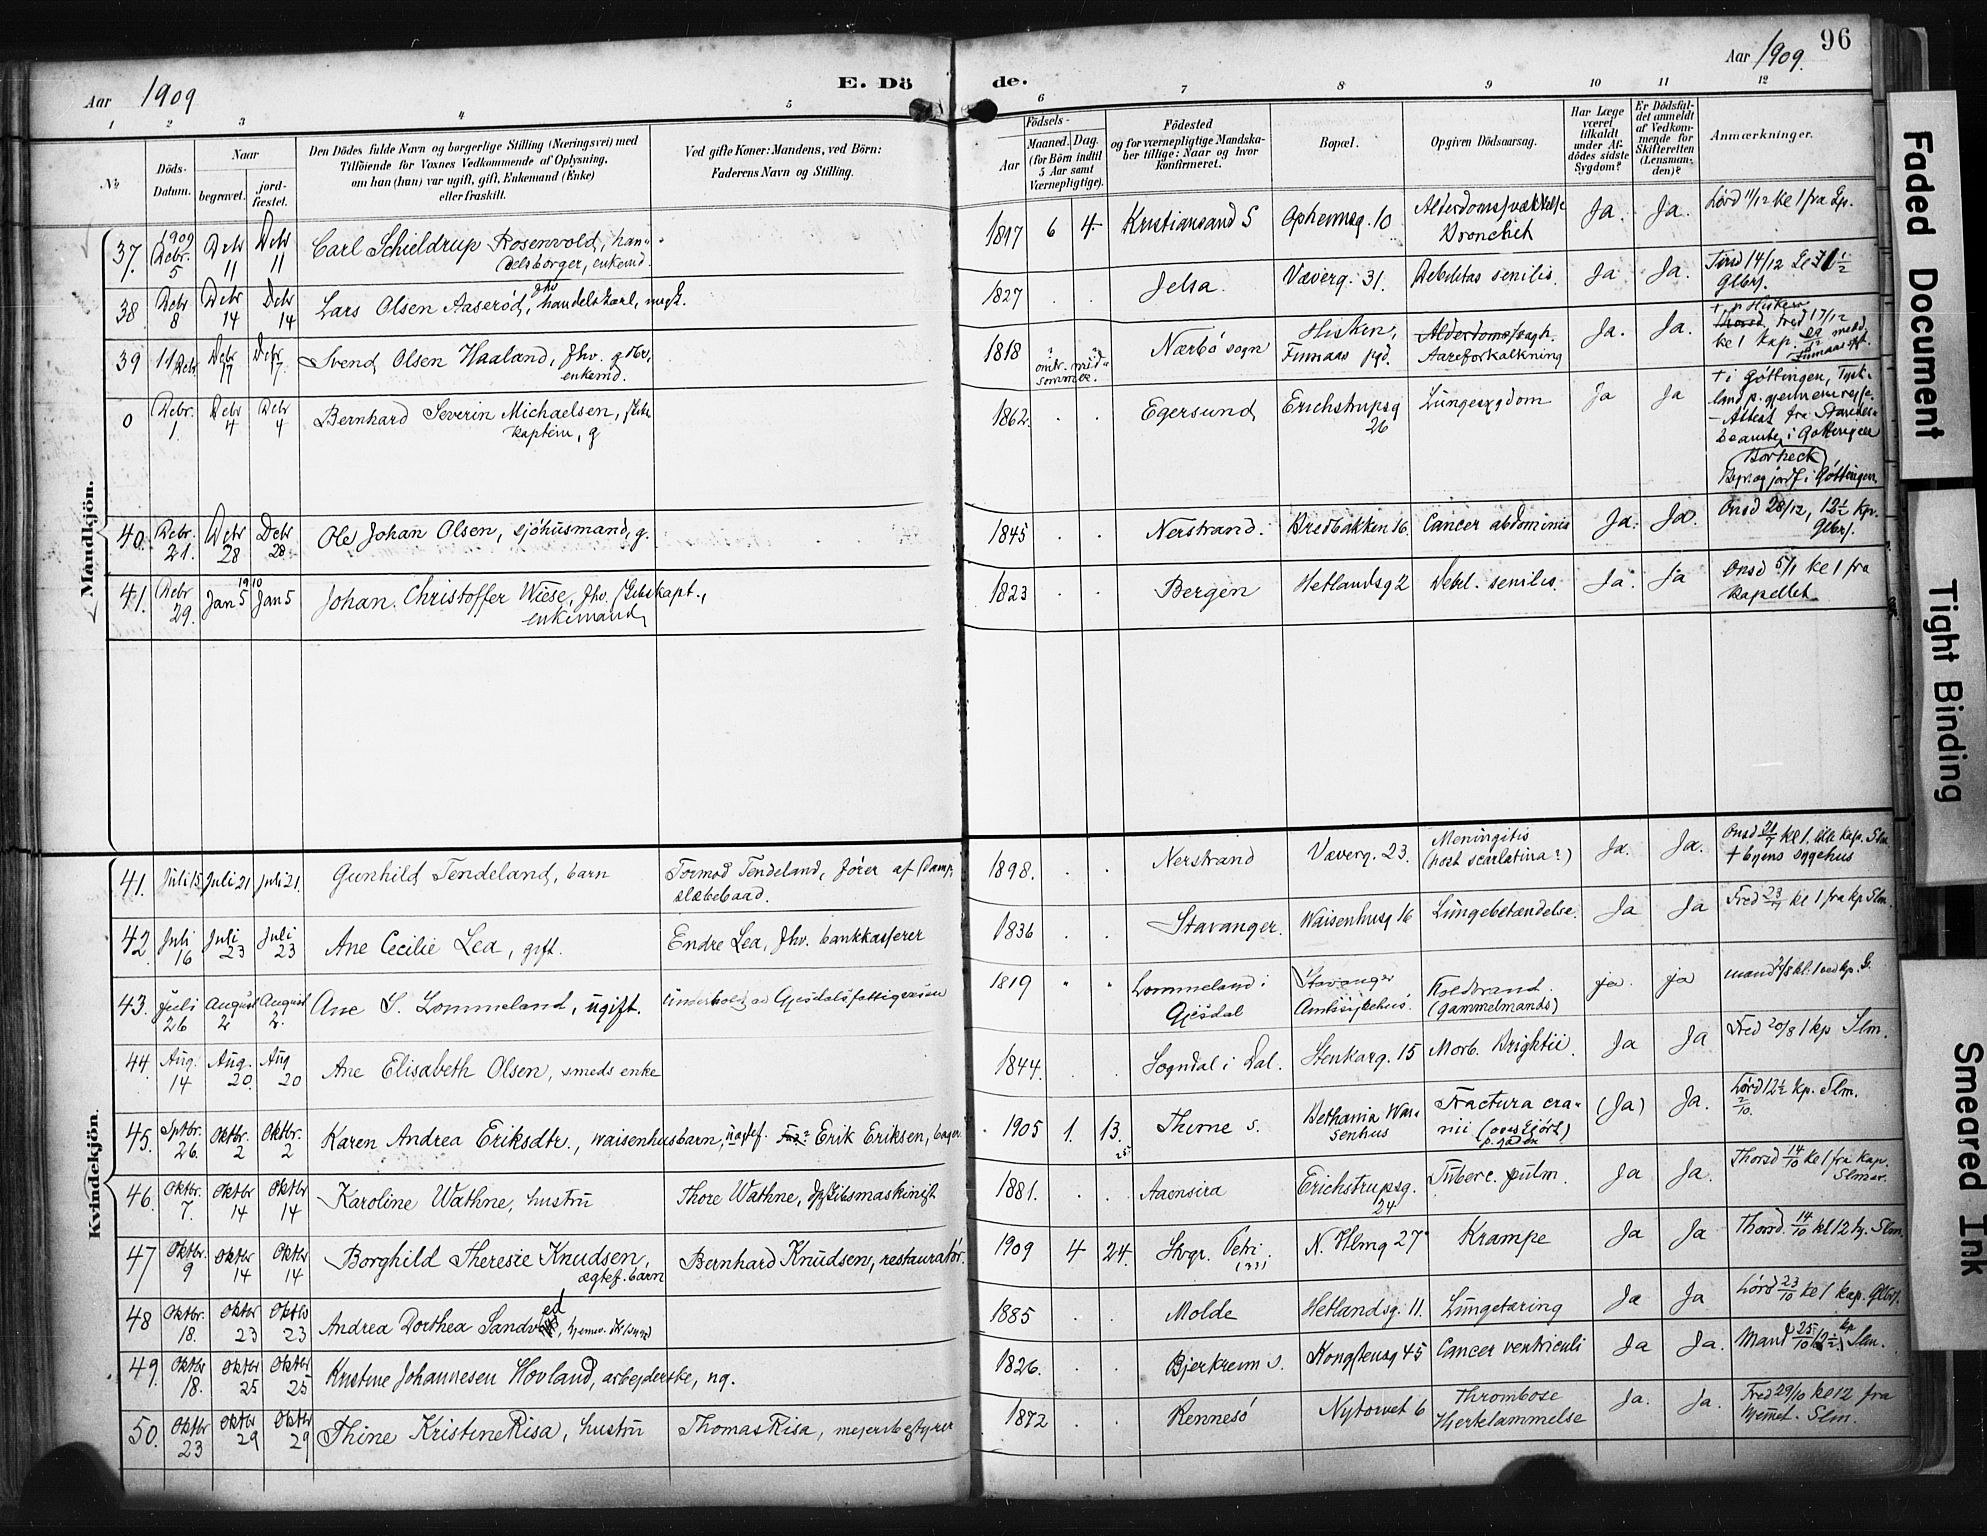 96
Aar 1909
E. Dö de.
Aar 1909.
1 2 3 4 5 6 7 8 9 10 11 12
No.
Döds-
Datum.
Naar
begravet.
jord-
fæstet.
Den Dödes fulde Navn og borgerlige Stilling (Næringsvei) med
Tilföiende for Voxnes Vedkommende af Oplysning,
om han (hun) var ugift, gift, Enkemand (Enke)
eller fraskilt.
Ved gifte Koner: Mandens, ved Börn:
Faderens Navn og Stilling.
Födsels-
Aar
Maaned. Dag.
(for Börn indtil
5 Aar samt
Værnepligtige).
Födested
og for værnepligtige Mandska-
ber tillige: Naar og hvor
konfirmeret.
Bopæl.
Opgiven Dödsaarsag.
Har Læge
været
tilkaldt
under Af-
dödes sidste
Sygdom?
Er Dödsfal-
det anmeldt
af Vedkom-
mende for
Skifteretten
(Lensman-
den)?
Anmærkninger.
Mandkjön.
37. 1909 Debr. 5 Debr 11 Debr 11 Carl Schieldrup Rosenvold, han-
delsborger, enkemd.
1847 6 4 Kristianssand S Ophemsg. 10 Alderdomssvækkelse
Bronchit Ja. Ja. Lørd 11/12 kl 1 fra Gp.
38 Debr 8 Debr 14 Debr 14 Lars Olsen Aaserød, fhv handelskarl, ugift.
1827 . . Jelsa. Væverg. 31. Debilitas senilis. Ja Ja. Tirsd 14/12
Glbrs.
39 11 Debr Debr 17 Debr 17 Svend Olsen Haaland, Fhv. gdbr,
enkemd.
1818 omtr. mid-
sommer. Nærbö sogn Hisken,
Finnaas pgd. Alderdomssvagh.
Aareforkalkning Ja. Ja. † p. Hisken
Thorsd, fred 17/12
kl 1 kap.
Finnaas
0 Debr. 1 Debr 4 Debr 4 Bernhard Severin Michaelsen, skibs
kaptein, g
1862 . . Egersund Erichstrupsg
26 Lungesygdom Ja Ja † i Göttingen, Tysk-
land p. gjennemrejse.
- Attest fra Standes-
beamte i Göttingen
Borheck
Begr. og jordf i Göttingen.
40. Debr. 21. Debr 28 Debr 28 Ole Johan Olsen, sjöhusmand, g.
1845 . . Nerstrand. Bredbakken 16. Cancer abdominis Ja. Ja. Onsd 28/12, 12½ kp.
Glbrs.
41. Debr 29. 1910 Jan 5 Jan 5 Johan Christoffer Wiese, fhv. skibskapt.,
enkemand,
1823 . . Bergen Hetlandsg 2 Debil. senilis. Ja. Ja Onsd 5/1 kl 1 fra
kapellet
Kvindekjön.
41. Juli 15 Juli 21 Juli 21. Gunhild Tendeland, barn Tormod Tendeland, fører af Damp-
slæbebaad.
1898. . . Nerstrand Væverg. 23. Meningitis
(post scarlatina?) Ja. Ja. Onsd 21/7 kl 1. lille kap. Slm
† byens sygehus
42 Juli 16 Juli 23 Juli 23 Ane Cecilie Lea, gift. Endre Lea, Fhv. bankkasserer
1836 . . Stavanger. Waisenhusg 16 Lungebetændelse. Ja Ja Fred 23/7 kl 1 fra kp Slm.
43. Juli 26 August 2 August 2. Ane S. Lommeland, ugift. underhold. av Gjesdals fattigvæsen
1819 " " Lommeland i
Gjesdal Stavanger
Amtssykehus. Koldbrand
(gammelmands) ja. ja mand 2/8 kl. 1 ved kp. G.
44 Aug. 14 Aug. 20. Aug 20 Ane Elisabeth Olsen, smeds enke
1844. . . Sogndal i Dal. Stenkarg. 15 Morb. Brightii. Ja Ja Fred 20/8 1 kp Slm.
45. Sptbr. 26. Oktbr. 2 Oktbr. 2 Karen Andrea Eriksdtr., waisenhusbarn, uægtef. Erik Eriksen, bager
1905 1. 13. Thime s. Bethania Wai-
senhus Fractura cra-
nii (overkjört)
p. gaden (Ja) Ja. Lørd 2/10. 12½ kp. Slm.
46. Oktbr. 7. Oktbr 14 Oktbr 14 Karoline Wathne, hustru Thore Wathne, skibsmaskinist
1881. . . Aaensira Erichstrupsg.
24 Tuberc. pulm. Ja Ja. Thorsd 14/10 kl 1 fra kap.
Slm.
47 Oktbr. 9 Oktbr 14 Oktbr 14 Borghild Theresie Knudsen,
ægtef. barn Bernhard Knudsen, restauratör.
1909 4 24. Stvgr. Petri N. Hlmg 27 Krampe Ja Ja Thorsd 14/10 kl 12 hj. Slm.
48 Oktbr. 18. Oktbr 23 Oktbr 23 Andrea Dorthea Sandved, hjemmev.
1885 . . Molde Hetlandsg. 11. Lungetæring Ja Ja Lørd 23/10 kl 1 kap. Glbrs.
49. Oktbr 18. Oktbr 25 Oktbr 25 Kristine Johannesen Hovland, arbejderske, ug.
1826. . . Bjerkreim s. Kongstensg 45 Cancer ventriculi Ja Ja. Mand 25/10 12½ kp Slm.
50. Oktbr 23 Oktbr 29 Oktbr 29 Thine Kristine Risa, hustru Thomas Risa, mejeribestyrer
1872 . . Rennesö Nytorvet 6 Thrombose
Hjerteklammelse Ja. Ja. Fred 29/10 kl 12 fra
hjemmet. Slm.
Faded Document
Tight Binding
Smeared Ink